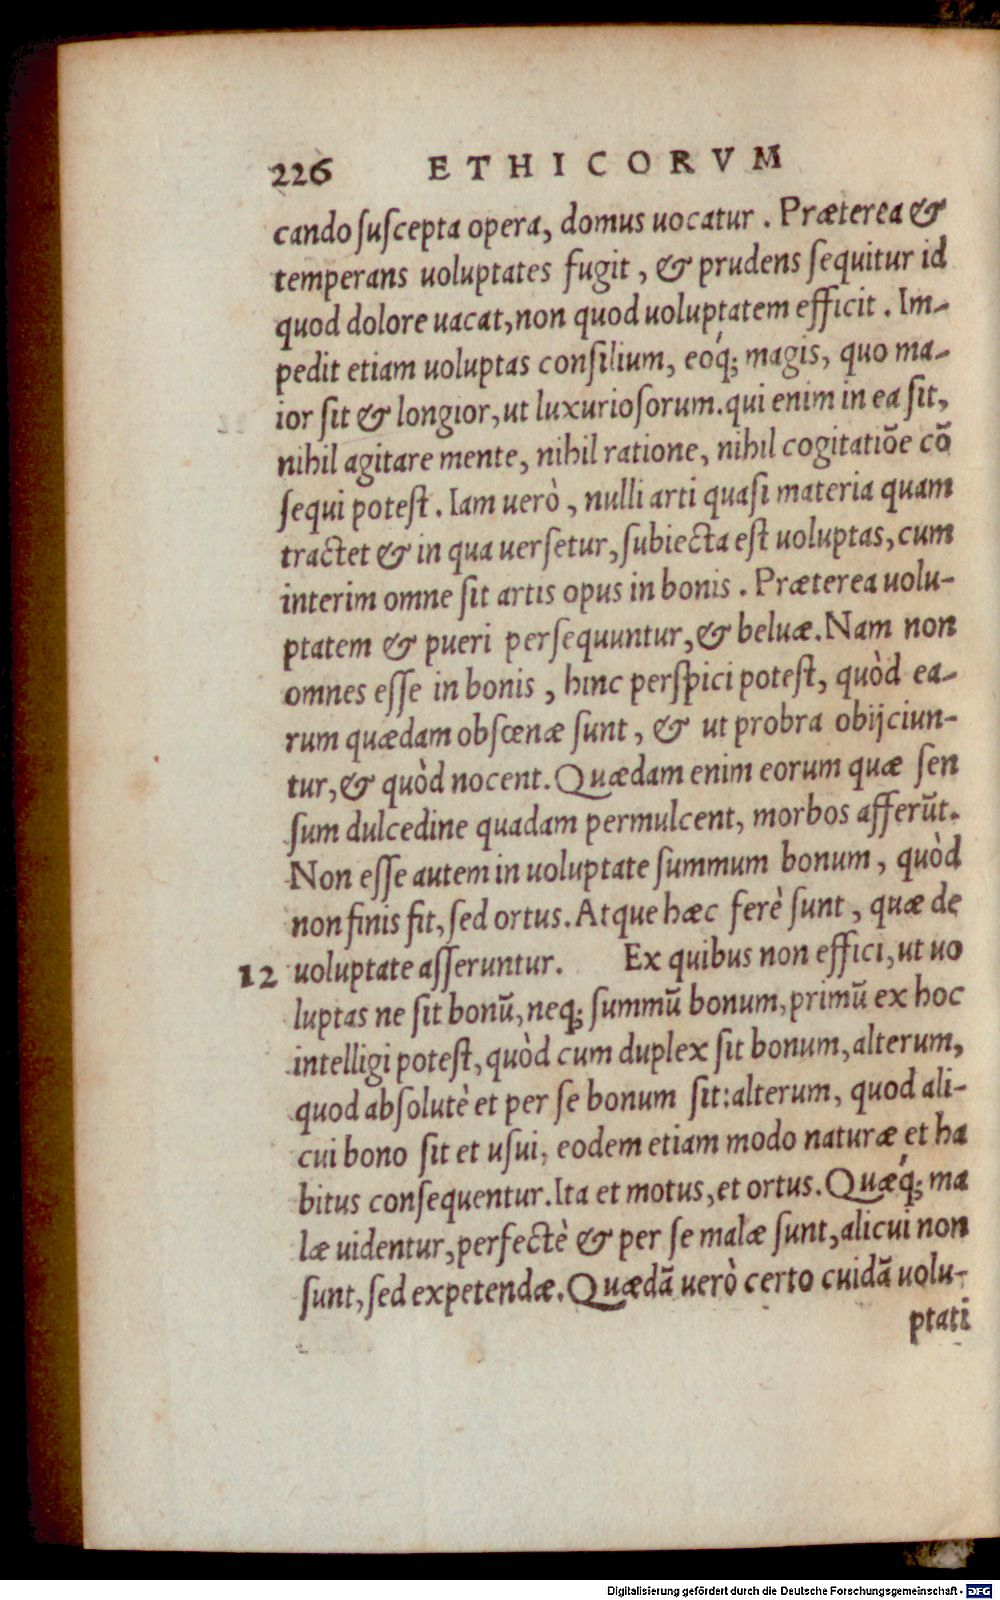 226 ETHICORVM
cando ſuſcepta opera, domus uocatur. Præterea &
temperans uoluptates fugit, & prudens ſequitur id
quod dolore uacat, non quod uoluptatem efficit. Im-
pedit etiam uoluptas conſilium, eoq́; magis, quo ma-
ior ſit & longior, ut luxurioſorum. qui enim in ea ſit,
nihil agitare mente, nihil ratione, nihil cogitatiōe cō
ſequi poteſt. Iam uerò, nulli arti quaſi materia quam
tractet & in qua uerſetur, ſubiecta eſt uoluptas, cum
interim omne ſit artis opus in bonis. Præterea uolu-
ptatem & pueri perſequuntur, & beluæ. Nam non
omnes eſſe in bonis, hinc perſpici poteſt, quòd ea-
rum quædam obſcenæ ſunt, & ut probra obijciun-
tur, & quòd nocent. Quædam enim eorum quæ ſen
ſum dulcedine quadam permulcent, morbos afferūt.
Non eſſe autem in uoluptate ſummum bonum, quòd
non finis ſit, ſed ortus. Atque hæc ferè ſunt, quæ de
12 uoluptate aſſeruntur. Ex quibus non effici, ut uo
luptas ne ſit bonū, neq; ſummū bonum, primū ex hoc
intelligi poteſt, quòd cum duplex ſit bonum, alterum,
quod abſolutè et per ſe bonum ſit: alterum, quod ali-
cui bono ſit et uſui, eodem etiam modo naturæ et ha
bitus conſequentur. Ita et motus, et ortus. Quæq́; ma
læ uidentur, perfectè & per ſe malæ ſunt, alicui non
ſunt, ſed expetendæ. Quædā uerò certo cuidā uolu-
ptati
Digitalisierung gefördert durch die Deutsche Forschungsgemeinschaft - DFG